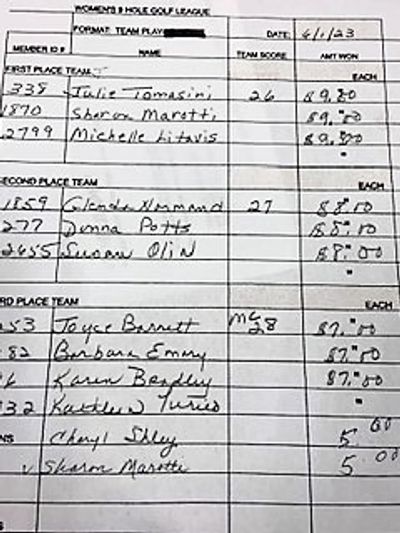 WOMEN'S 9 HOLE GOLF LEAGUE
FORMAT: TEAM PLAY DATE: 6/1/23
MEMBER ID # NAME TEAM SCORE AMT WON
FIRST PLACE TEAM EACH
338 Julie Tomasini 26
1870 Sharon Marotti
2799 Michelle Litavis
SECOND PLACE TEAM EACH
1859 Glenda Normand 27
277 Donna Potts
2655 Susan Olin
RD PLACE TEAM EACH
253 Joyce Barrett MC 28 $7.00
82 Barbara Emory $7.00
6 Karen Beadley $7.00
332 Kathleen
NS Cheryl 5.00
Sharon Marotti 5.00